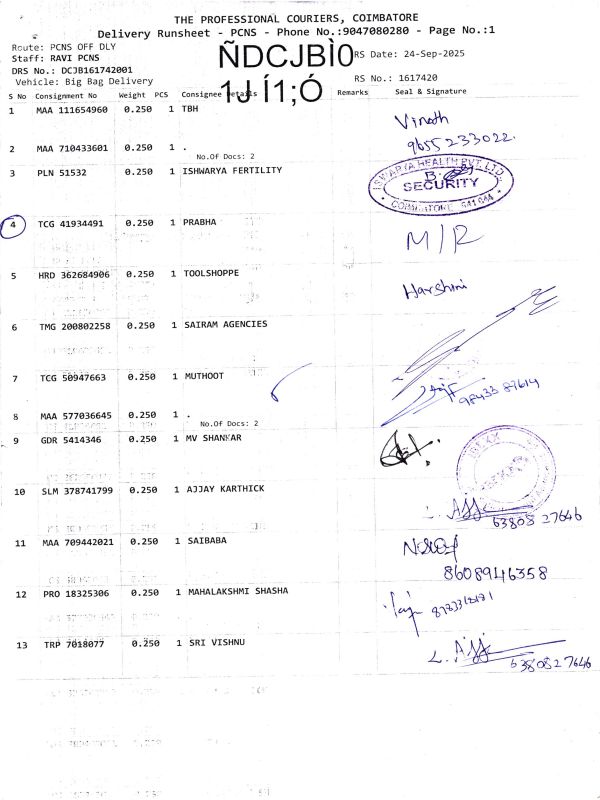 THE PROFESSIONAL COURIERS, COIMBATORE
Delivery Runsheet - PCNS - Phone No.:9047080280 - Page No.:1
Route: PCNS OFF DLY
Staff: RAVI PCNS
DRS No.: DCJB161742001
Vehicle: Big Bag Delivery
ÑDCJBÌ0
1J Í1;Ó
RS Date: 24-Sep-2025
RS No.: 1617420
S No Consignment No Weight PCS Consignee Details Remarks Seal & Signature
1 MAA 111654960 0.250 1 TBH
Vinoth
9655 233022.
2 MAA 710433601 0.250 1 .
No.Of Docs: 2
3 PLN 51532 0.250 1 ISHWARYA FERTILITY
SECURITY
4 TCG 41934491 0.250 1 PRABHA
M/R
5 HRD 362684906 0.250 1 TOOLSHOPPE
Harshini
6 TMG 200802258 0.250 1 SAIRAM AGENCIES
7 TCG 50947663 0.250 1 MUTHOOT
98433 87614
8 MAA 577036645 0.250 1 .
No.Of Docs: 2
9 GDR 5414346 0.250 1 MV SHANKAR
10 SLM 378741799 0.250 1 AJJAY KARTHICK
63808 27646
11 MAA 709442021 0.250 1 SAIBABA
8608946358
12 PRO 18325306 0.250 1 MAHALAKSHMI SHASHA
13 TRP 7018077 0.250 1 SRI VISHNU
63808 27646